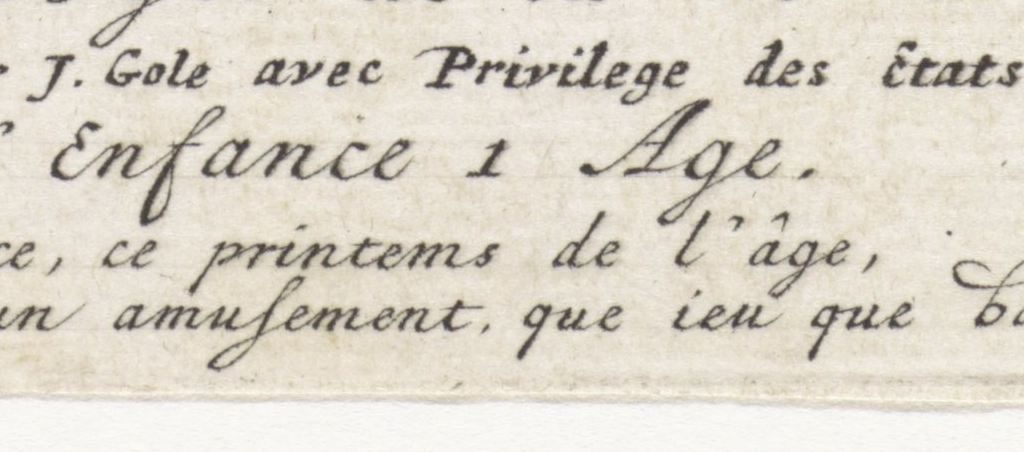 J. Gole avec Privilege des États
Enfance 1 Age.
ce, ce printems de l'âge,
un amuſement, que ieu que